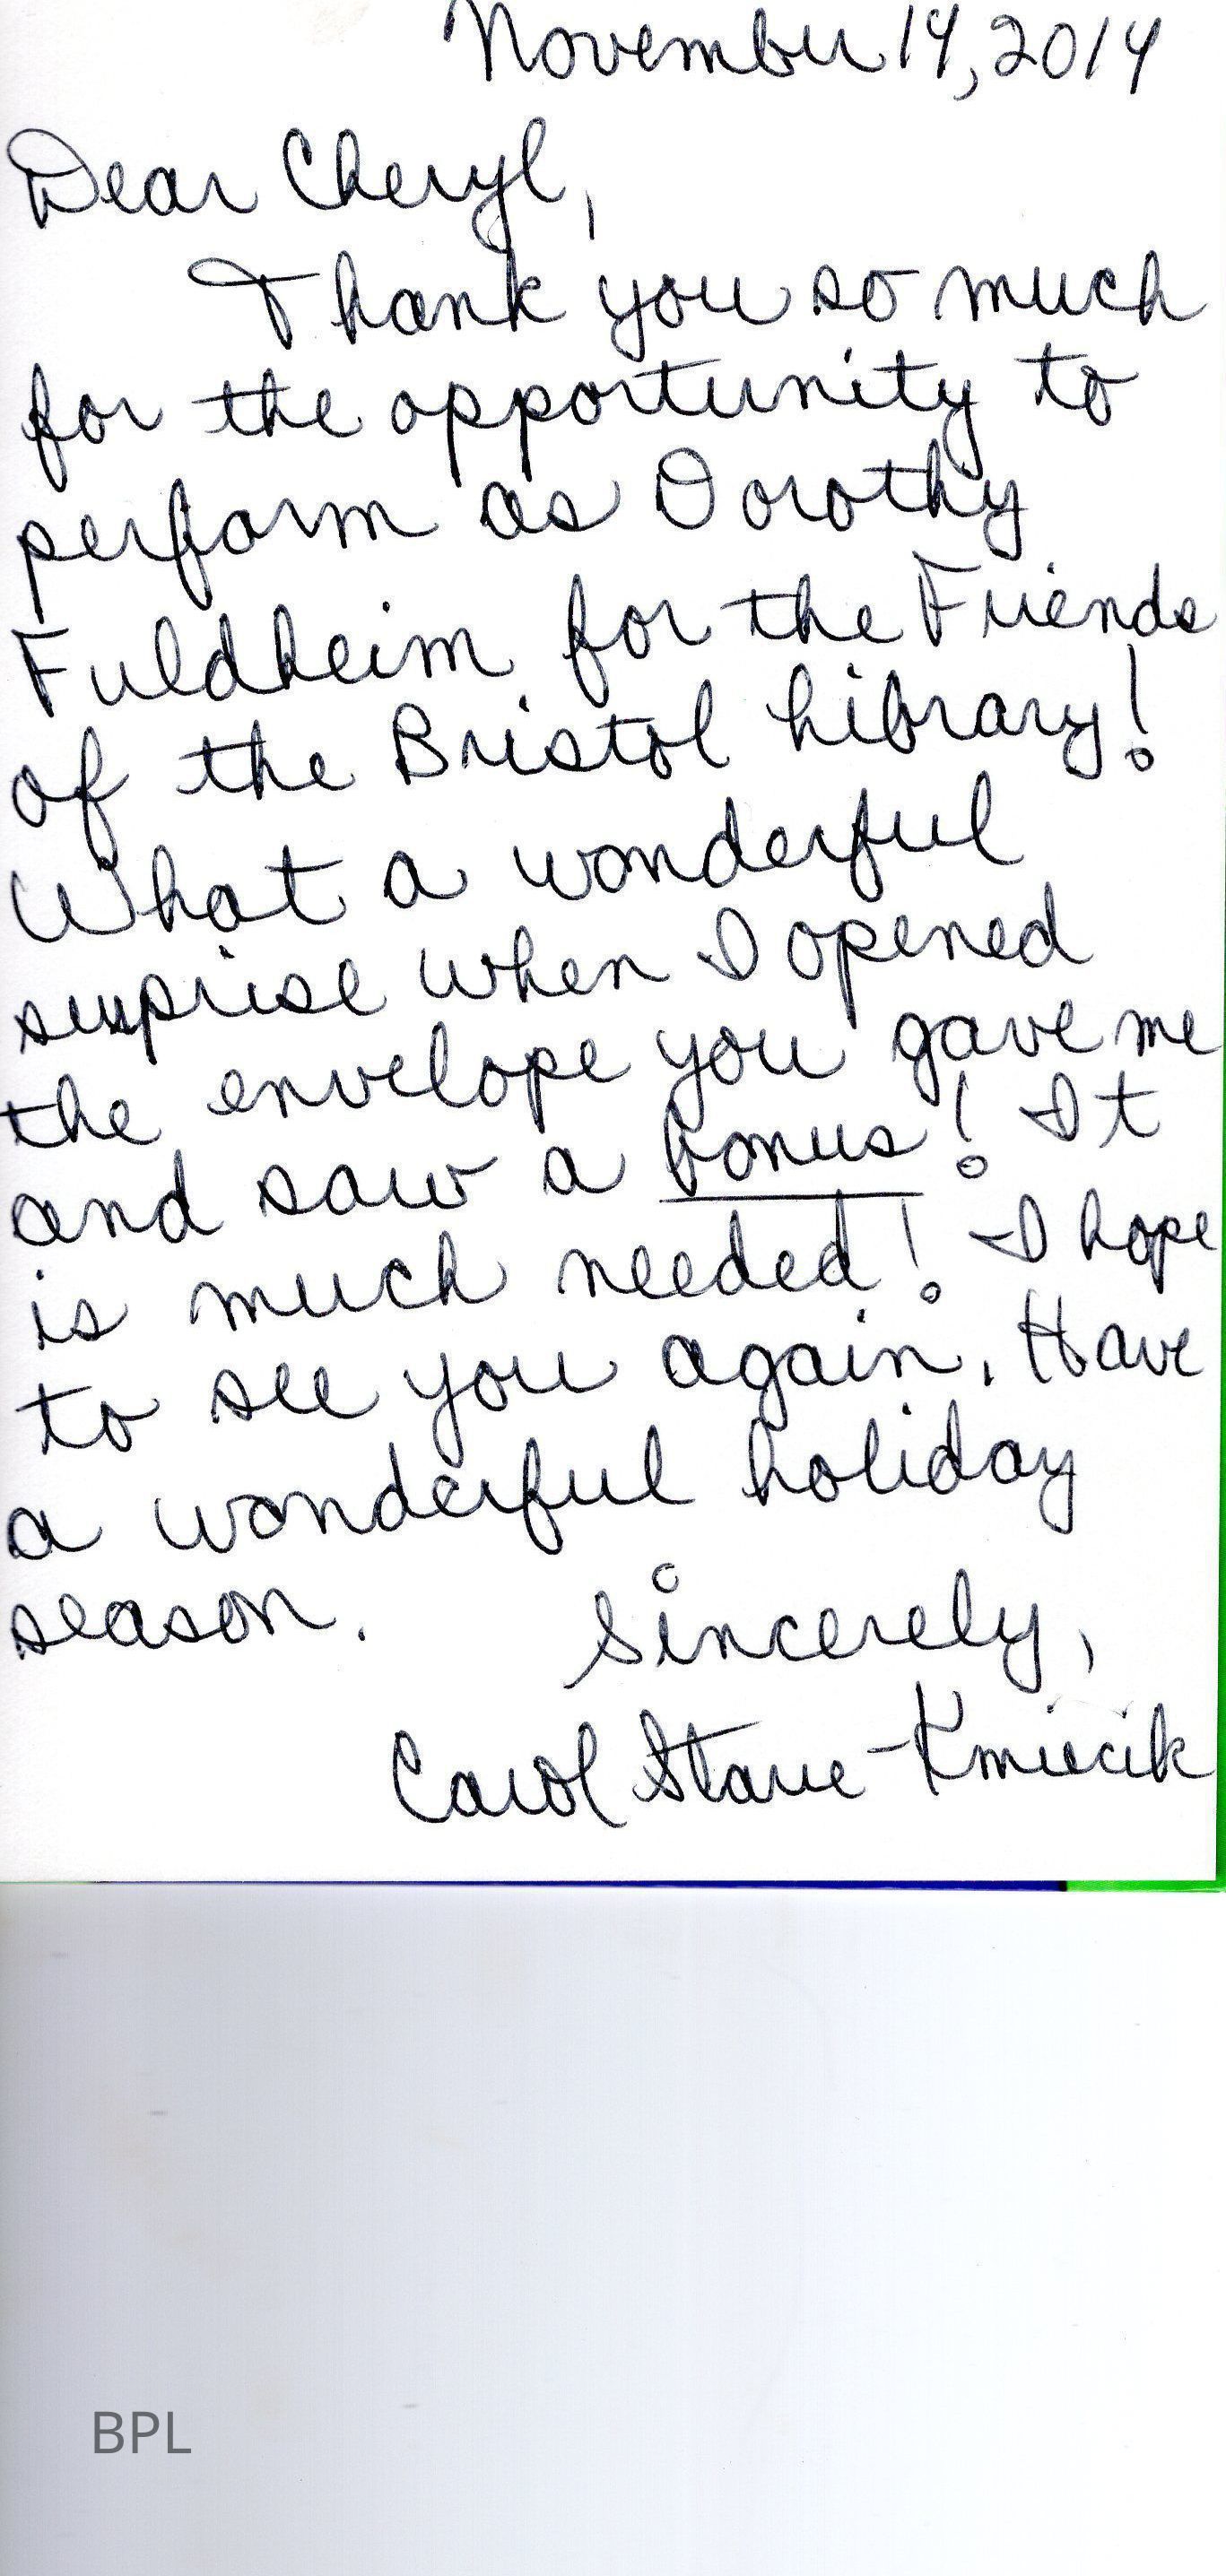 November 14, 2014
Dear Cheryl,
Thank you so much
for the opportunity to
perform as Dorothy
Fuldheim for the Friends
of the Bristol Library!
What a wonderful
surprise when I opened
the envelope you gave me
and saw a bonus! It
is much needed! I hope
to see you again. Have
a wonderful holiday
season.
Sincerely,
Carol Starre-Kmiecik
BPL